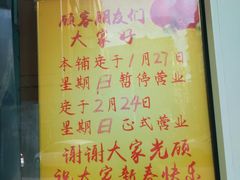 顾客朋友们
大家好
本铺定于1月27日
星期日暂停营业
定于2月24日
星期日正式营业
谢谢大家光顾
祝大家新春快乐